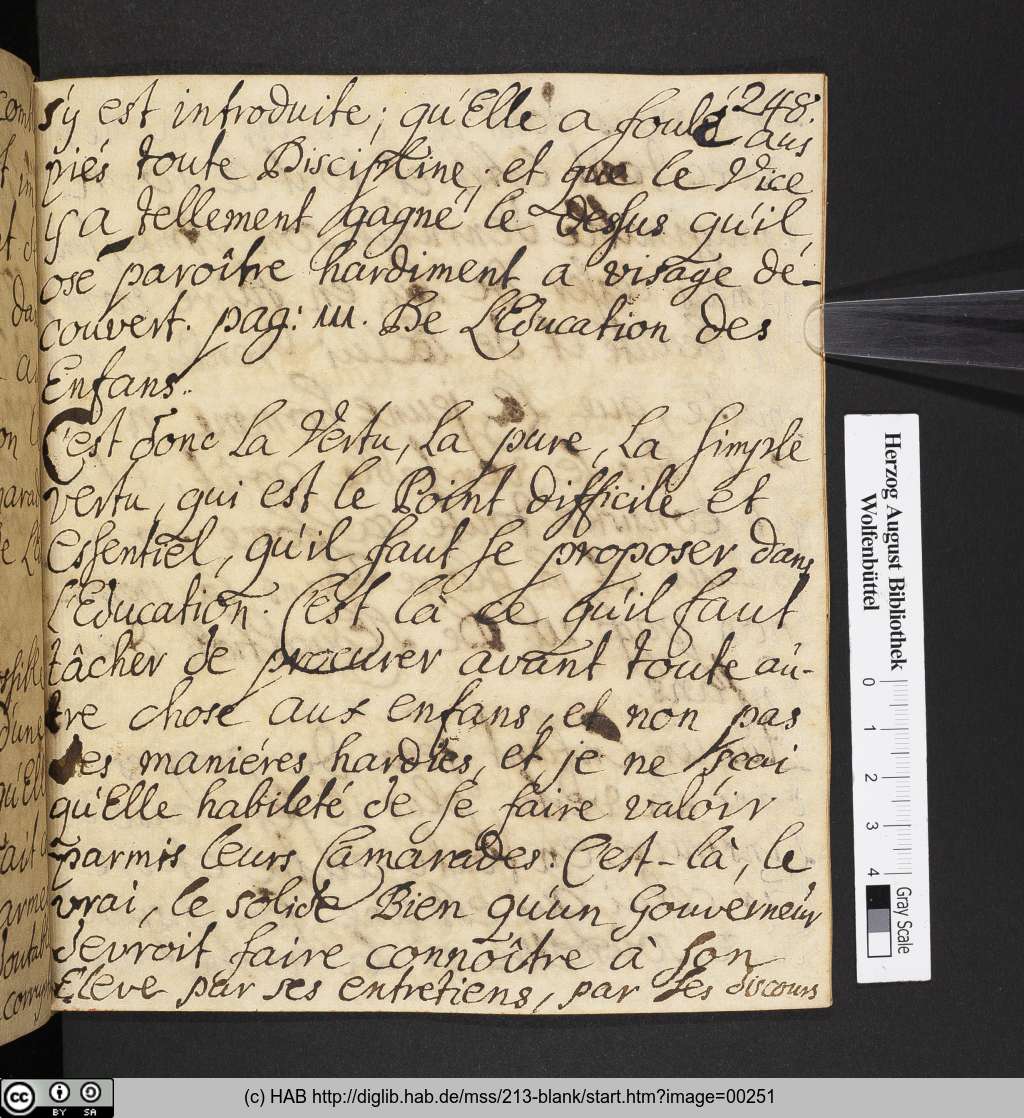 248.
s'y est introduite; qu'Elle a foulé aus
piés toute Discipline, et que le Vice
y a tellement gagné le dessus qu'il
ose paroître hardiment a visage dé-
couvert. pag: 111. De L'Education des
Enfans..
C'est donc La Vertu, La pure, La simple
vertu, qui est le Point difficile et
Essentiel, qu'il faut se proposer dans
L'Education. C'est là ce qu'il faut
tâcher de procurer avant toute au-
tre chose aux enfans, et non pas
des maniéres hardies, et je ne sçai
qu'Elle habileté de se faire valoir
parmis leurs Camarades: C'est-là, le
vrai, le solide Bien qu'un Gouverneur
devroit faire connoître à son
Eleve par ses entretiens, par ses discours
Herzog August Bibliothek
Wolfenbüttel
0 1 2 3 4
Gray Scale
cc BY SA
(c) HAB http://diglib.hab.de/mss/213-blank/start.htm?image=00251